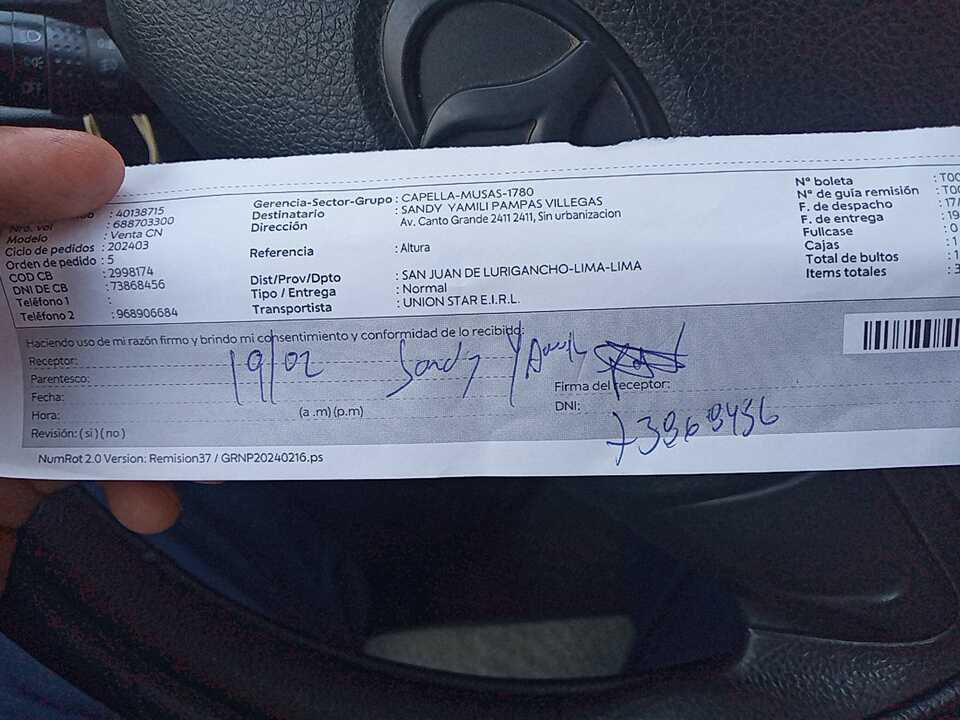 : 40138715
Nro. vol : 688703300
Modelo : Venta CN
Ciclo de pedidos : 202403
Orden de pedido : 5
COD CB : 2998174
DNI DE CB : 73868456
Teléfono 1 :
Teléfono 2 : 968906684
Gerencia-Sector-Grupo : CAPELLA-MUSAS-1780
Destinatario : SANDY YAMILI PAMPAS VILLEGAS
Dirección Av. Canto Grande 2411 2411, Sin urbanizacion
Referencia : Altura
Dist/Prov/Dpto : SAN JUAN DE LURIGANCHO-LIMA-LIMA
Tipo / Entrega : Normal
Transportista : UNION STAR E.I.R.L.
N° boleta : T00
N° de guía remisión : T00
F. de despacho : 17/
F. de entrega : 19
Fullcase : 0
Cajas : 1
Total de bultos : 1
Items totales : 3
Haciendo uso de mi razón firmo y brindo mi consentimiento y conformidad de lo recibido:
Receptor:
Parentesco:
Fecha: 19/02
Sandy
Hora: (a .m) (p.m)
Revisión: ( si ) ( no )
Firma del receptor:
DNI: 73868456
NumRot 2.0 Version: Remision37 / GRNP20240216.ps
OFF